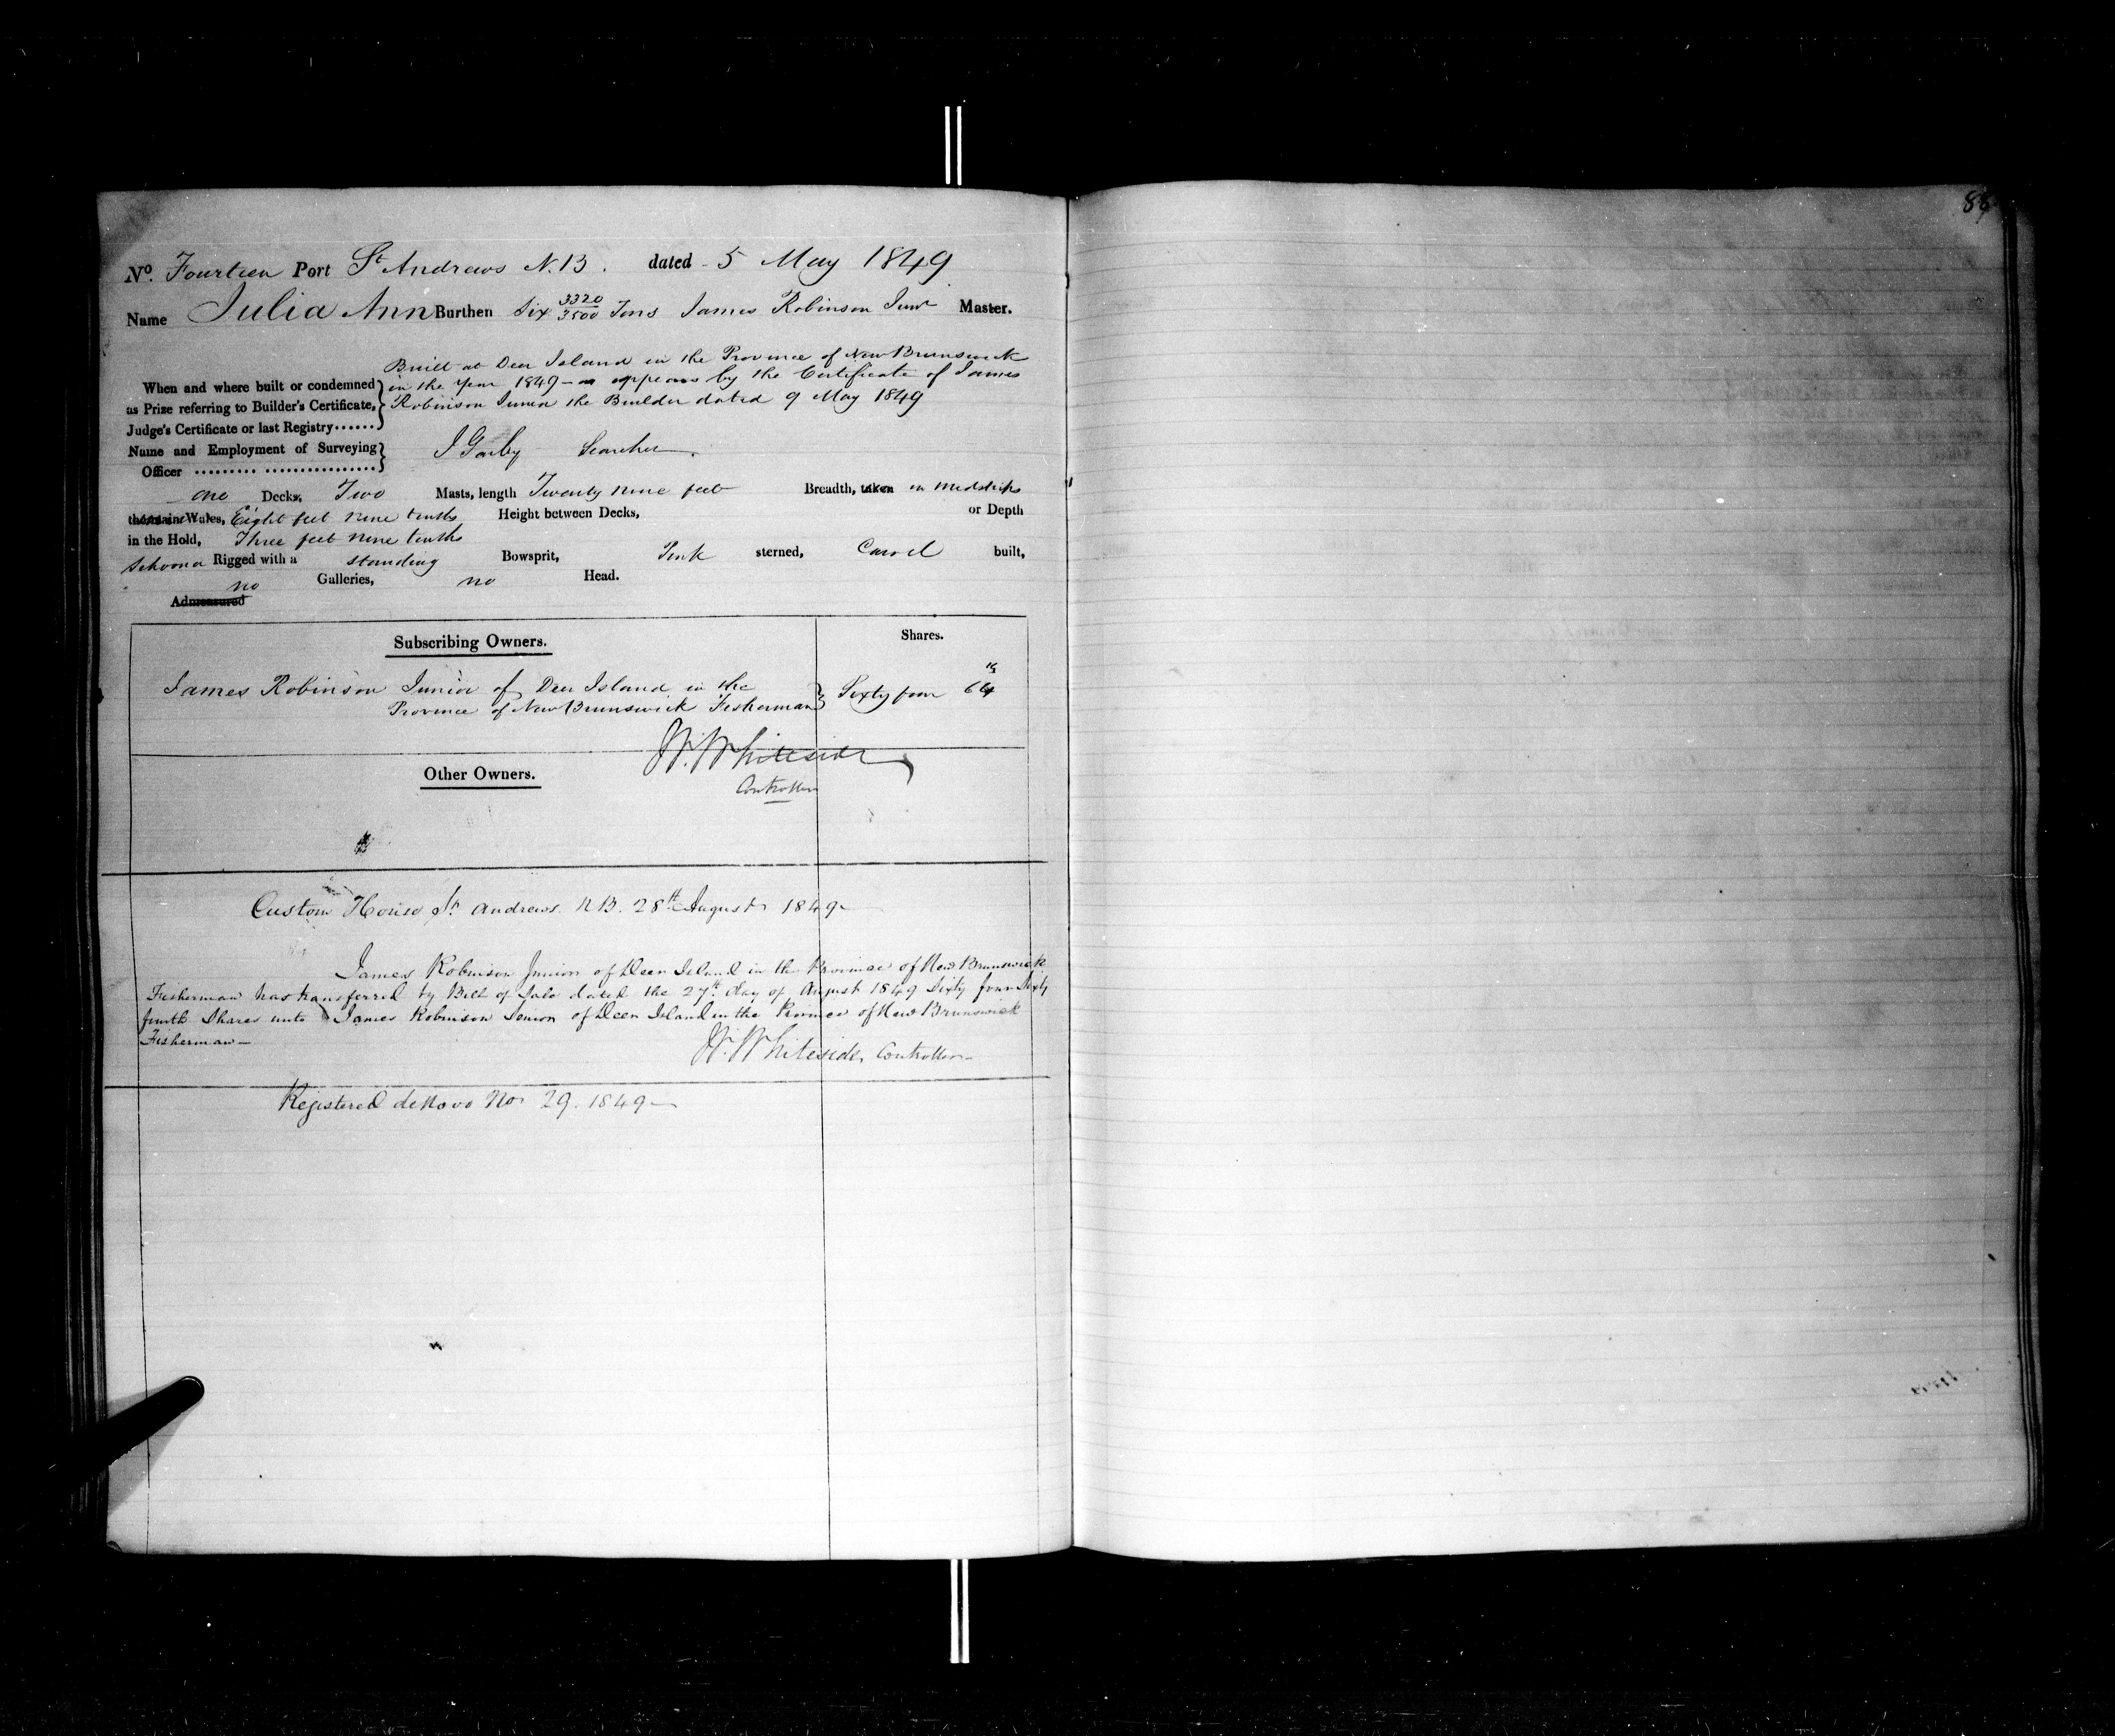 88
No. Fourteen Port St Andrews N.B. dated 5 May 1849
Name Julia Ann Burthen Six 3320/3500 Tons James Robinson Junr Master.
Built at Deer Island in the Province of New Brunswick
When and where built or condemned in the Year 1849 - as appears by the Certificate of James
as Prize referring to Builder's Certificate, Robinson Junior the Builder dated 9 May 1849
Judge's Certificate or last Registry......
Name and Employment of Surveying
Officer ......... ................ Searcher
one Decks, Two Masts, length Twenty nine feet Breadth, taken in Midships
the main Wales, Eight feet nine tenths Height between Decks, or Depth
in the Hold, Three feet nine tenths
Schooner Rigged with a standing Bowsprit, Pink sterned, Carvel built,
no Galleries, no Head.
Admeasured
Subscribing Owners. Shares.
James Robinson Junior of Deer Island in the
Province of New Brunswick Fisherman } Sixty four 64
W. Whiteside
Controller
Other Owners.
Custom House St Andrews N B. 28th August 1849
James Robinson Junior of Deer Island in the Province of New Brunswick
Fisherman has transferred by Bill of Sale dated the 27th day of August 1849 Sixty four Sixty
fourth Shares unto James Robinson Senior of Deer Island in the Province of New Brunswick
Fisherman—
W. Whiteside, Controller—
Registered de Novo No 29. 1849—